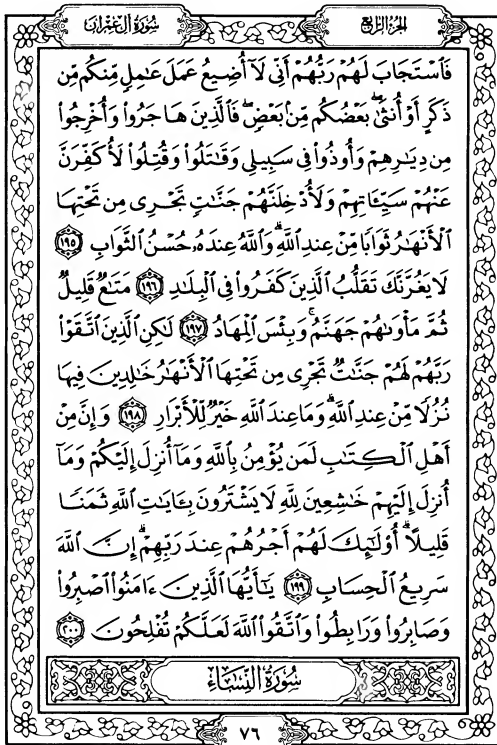 الجزء الرابع
سورة آل عمران
فَاسْتَجَابَ لَهُمْ رَبُّهُمْ أَنِّى لَآ أُضِيعُ عَمَلَ عَامِلٍ مِّنكُم مِّن
ذَكَرٍ أَوْ أُنثَىٰ بَعْضُكُم مِّنۢ بَعْضٍ فَالَّذِينَ هَاجَرُوا۟ وَأُخْرِجُوا۟
مِن دِيَـٰرِهِمْ وَأُوذُوا۟ فِى سَبِيلِى وَقَـٰتَلُوا۟ وَقُتِلُوا۟ لَأُكَفِّرَنَّ
عَنْهُمْ سَيِّـَٔاتِهِمْ وَلَأُدْخِلَنَّهُمْ جَنَّـٰتٍ تَجْرِى مِن تَحْتِهَا
الْأَنْهَـٰرُ ثَوَابًا مِّنْ عِندِ اللَّهِ ۗ وَاللَّهُ عِندَهُۥ حُسْنُ الثَّوَابِ ١٩٥
لَا يَغُرَّنَّكَ تَقَلُّبُ الَّذِينَ كَفَرُوا۟ فِى الْبِلَـٰدِ ١٩٦ مَتَـٰعٌ قَلِيلٌ
ثُمَّ مَأْوَىٰهُمْ جَهَنَّمُ ۚ وَبِئْسَ الْمِهَادُ ١٩٧ لَـٰكِنِ الَّذِينَ اتَّقَوْا۟
رَبَّهُمْ لَهُمْ جَنَّـٰتٌ تَجْرِى مِن تَحْتِهَا الْأَنْهَـٰرُ خَـٰلِدِينَ فِيهَا
نُزُلًا مِّنْ عِندِ اللَّهِ ۗ وَمَا عِندَ اللَّهِ خَيْرٌ لِّلْأَبْرَارِ ١٩٨ وَإِنَّ مِنْ
أَهْلِ الْكِتَـٰبِ لَمَن يُؤْمِنُ بِاللَّهِ وَمَآ أُنزِلَ إِلَيْكُمْ وَمَآ
أُنزِلَ إِلَيْهِمْ خَـٰشِعِينَ لِلَّهِ لَا يَشْتَرُونَ بِـَٔايَـٰتِ اللَّهِ ثَمَنًا
قَلِيلًا ۗ أُو۟لَـٰٓئِكَ لَهُمْ أَجْرُهُمْ عِندَ رَبِّهِمْ ۗ إِنَّ اللَّهَ
سَرِيعُ الْحِسَابِ ١٩٩ يَـٰٓأَيُّهَا الَّذِينَ ءَامَنُوا۟ اصْبِرُوا۟
وَصَابِرُوا۟ وَرَابِطُوا۟ وَاتَّقُوا۟ اللَّهَ لَعَلَّكُمْ تُفْلِحُونَ ٢٠٠
سُورَةُ النِّسَاءِ
٧٦